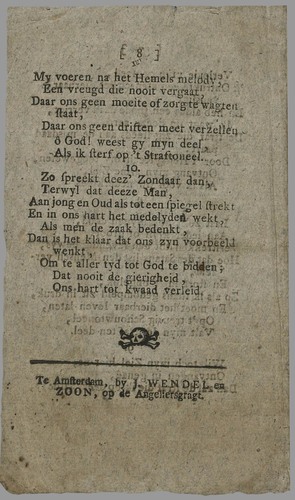 [ 8 ]
My voeren na het Hemels melody,
Een vreugd die nooit vergaat,
Daar ons geen moeite of zorg te wagten
staat,
Daar ons geen driften meer verzellen
ô God! weest gy myn deel,
Als ik sterf op 't Straftoneel.
10.
Zo spreekt deez' Zondaar dan,
Terwyl dat deeze Man,
Aan jong en Oud als tot een spiegel strekt
En in ons hart het medelyden wekt,
Als men de zaak bedenkt,
Dan is het klaar dat ons zyn voorbeeld
wenkt,
Om te aller tyd tot God te bidden;
Dat nooit de gierigheid,
Ons hart tot kwaad verleid.
Te Amsterdam, by J. WENDEL en
ZOON, op de Angeliersgragt.